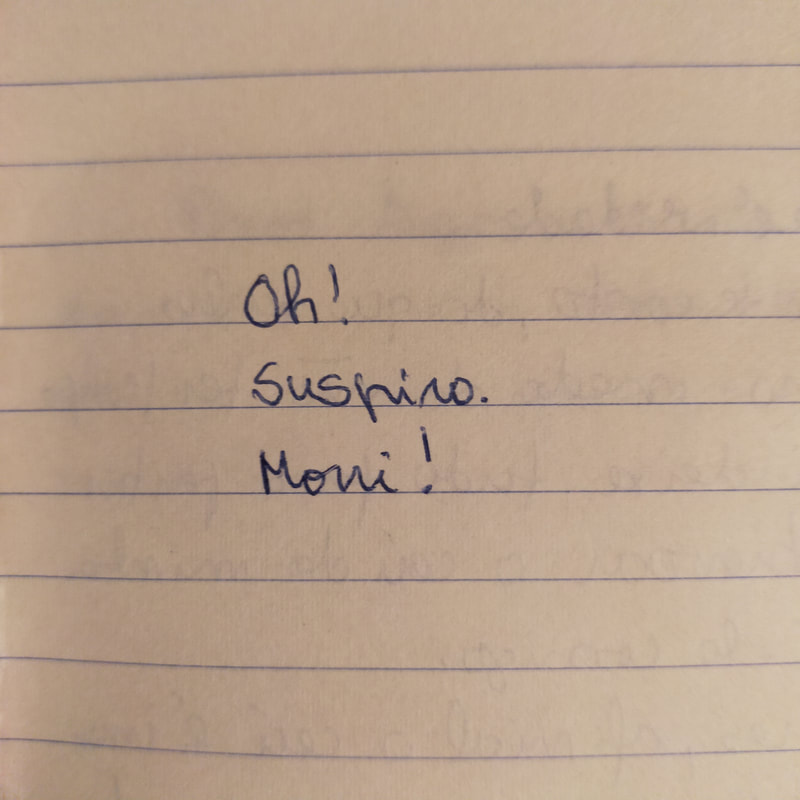 Oh!
Suspiro.
Morri!